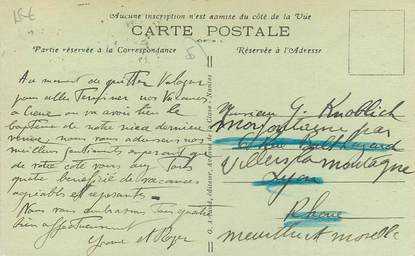 Aucune inscription n'est admise du côté de la Vue
CARTE POSTALE
Partie réservée à la Correspondance
Réservée à l'Adresse
Au moment de quitter Valognes
pour aller terminer nos vacances
à Caen où va avoir lieu le
baptême de notre nièce dernière
venue, nous vous adressons nos
meilleurs sentiments espérant que
de votre côté vous avez tous
bénéficié de vacances
agréables et reposantes
Nous vous embrassons tous quatre
bien affectueusement
Yvonne et Roger
Monsieur G. Knoblich
par
Villers la montagne
Lyon
Rhône
meurthe et moselle